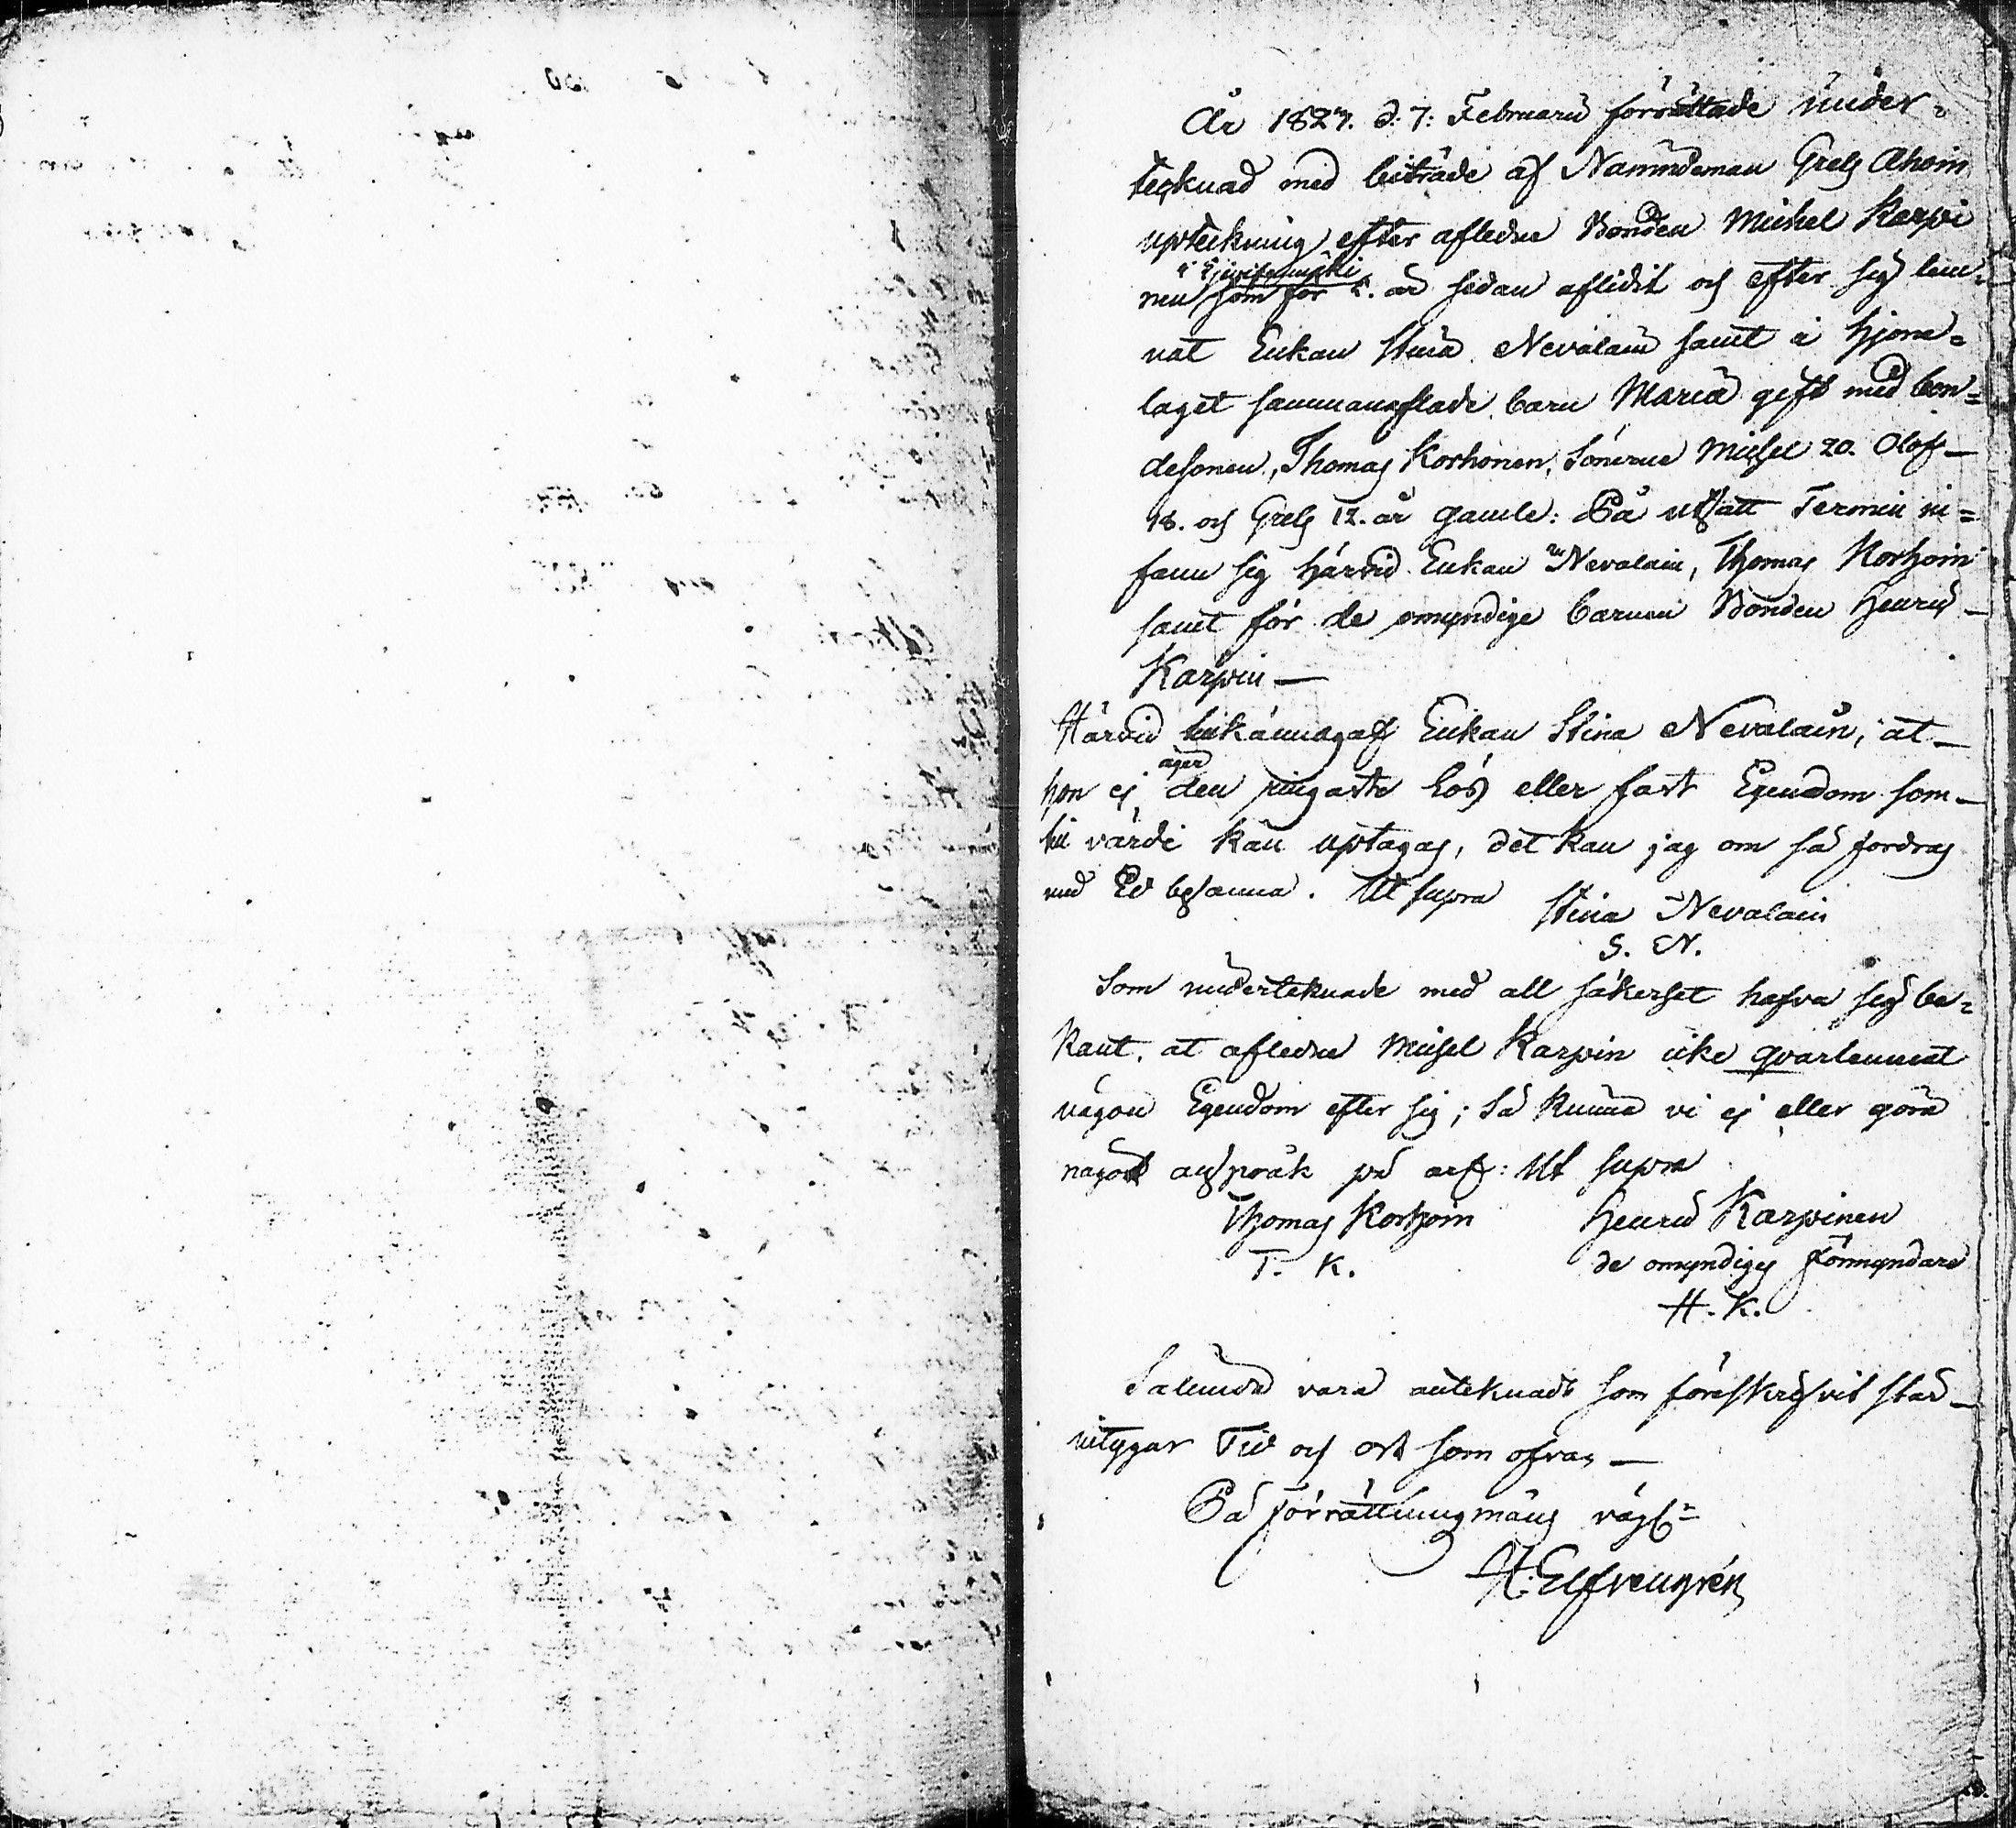 År 1827. d: 7: Februarii förrättade under=
teknad med biträde af Nämndeman Grels Ahoin
upteckning efter afledne Bonden Michel Karpi
nen som för 5. år sedan aflidit och efter sig lem=
nat Enkan Stina Nevalain samt i hjona=
laget sammanaflade barn Maria gift med bon=
desonen, Thomas Korhonen, Sönerne Michel 20. Olof
18. och Grels 12. år gamle: På utsatt Termin in=
fann sig härvid Enkan Nevalain, Thomas Korhoin
samt för de omyndige barnen Bonden Henric
Karpin —
Härvid tilkännagaf Enkan Stina Nevalain, at
hon ej äger den ringaste lös eller fast Egendom som
til värde kan uptagas, det kan jag om så fordras
med Ed besanna. Ut supra Stina Nevalain
S. N.
Som underteknade med all säkerhet hafva sig be=
kant, at afledne Michel Karpin icke qvarlemnat
någon Egendom efter sig; Så kunna vi ej eller göra
något anspråk på arf: Ut supra
Thomas Korhoin Henric Karpinen
T. K. de omyndiges förmyndare
H. K.
Salunda vara anteknadt som föreskrifvit står
vitygar Tid och ort som ofvan —
På Förrättningsmäns vägnar
Elfvengrén